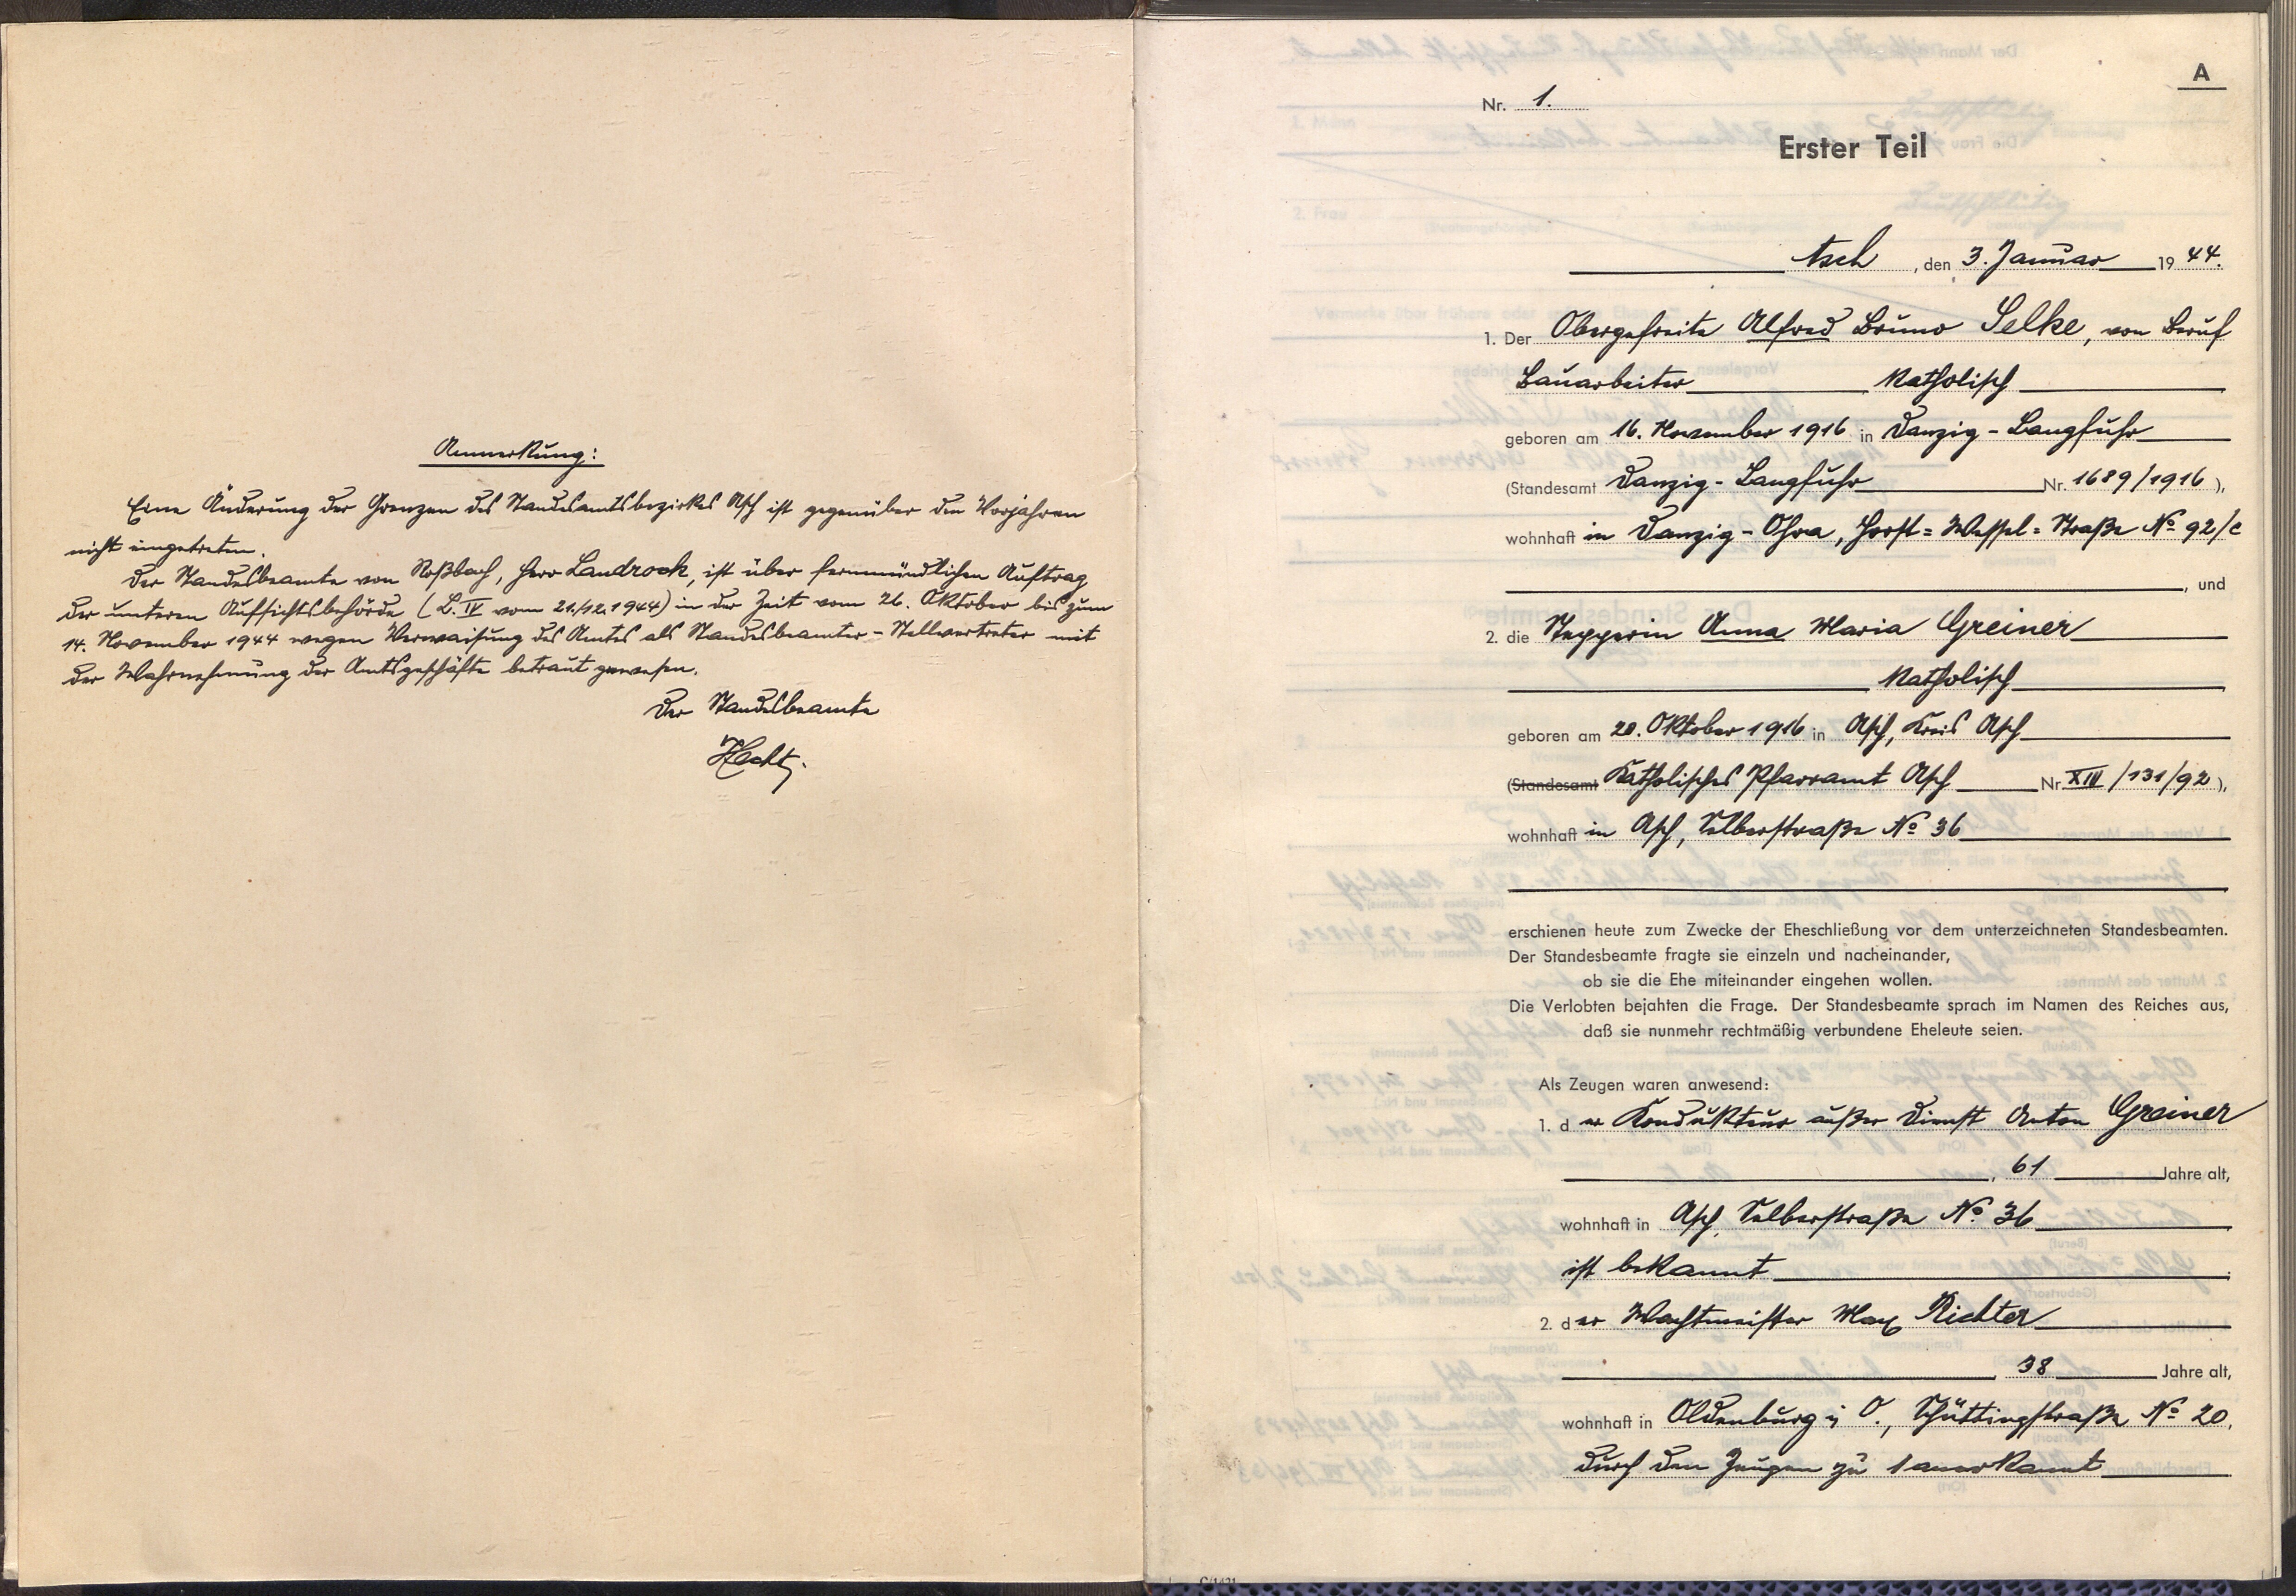 Anmerkung:
Eine Änderung der Grenzen des Standesamtsbezirkes Asch ist gegenüber den Vorjahren
nicht eingetreten.
Der Standesbeamte von Roßbach, Herr Landrock, ist über fernmündlichen Auftrag
der unteren Aufsichtsbehörde (L. IV vom 21./12.1944) in der Zeit vom 26. Oktober bis zum
14. November 1944 wegen Verwaisung des Amtes als Standesbeamter-Stellvertreter mit
der Wahrnehmung der Amtsgeschäfte betraut gewesen.
Der Standesbeamte
Hecht
A
Nr. 1.
Erster Teil
Asch, den 3. Januar 1944.
1. Der Obergefreite Alfred Bruno Selke, von Beruf
Bauarbeiter Katholisch
geboren am 16. November 1916 in Danzig-Langfuhr
(Standesamt Danzig-Langfuhr Nr. 1689/1916),
wohnhaft in Danzig-Ohra, Horst=Wessel=Straße No 92/c
, und
2. die Stepperin Anna Maria Greiner
Katholisch
geboren am 20. Oktober 1916 in Asch, Kreis Asch
(Standesamt Katholisches Pfarramt Asch Nr. XIV/131/92),
wohnhaft in Asch, Selberstraße No 36
erschienen heute zum Zwecke der Eheschließung vor dem unterzeichneten Standesbeamten.
Der Standesbeamte fragte sie einzeln und nacheinander,
ob sie die Ehe miteinander eingehen wollen.
Die Verlobten bejahten die Frage. Der Standesbeamte sprach im Namen des Reiches aus,
daß sie nunmehr rechtmäßig verbundene Eheleute seien.
Als Zeugen waren anwesend:
1. der Kondukteur außer Dienst Anton Greiner
, 61 Jahre alt,
wohnhaft in Asch, Selberstraße No 36
ist bekannt.
2. der Wachtmeister Max Richter
, 38 Jahre alt,
wohnhaft in Oldenburg i. O., Schüttingstraße No 20,
durch den Zeugen zu 1 anerkannt